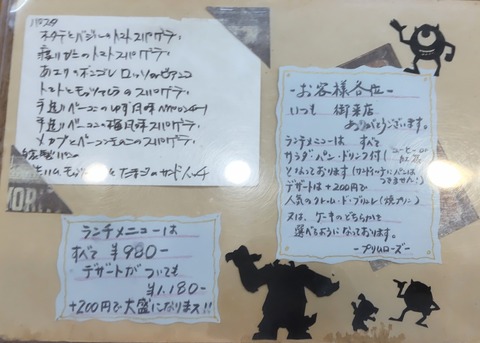 パスタ
ホタテとバジルのトマトスパゲティ
渡りガニのトマトスパゲティ
あさりのボンゴレロッソのビアンコ
トマトとモッツァレラのスパゲティ
手造りベーコンのゆず風味ペペロンチーノ
手造りベーコンの梅風味スパゲティ
メカブとベーコンきのこのスパゲティ
自家製パン
生ハム モッツァレラ たまごのサンドイッチ
ランチメニューは
すべて ¥980-
デザートがついても
¥1,180-
+200円で大盛になります!!
-お客様各位-
いつも 御来店
ありがとうございます。
ランチメニューは すべて
サラダ・パン・ドリンク付(コーヒーor紅茶)
となっております(サンドイッチにパンはつきません!)
デザートは+200円で
人気のクレーム・ド・ブルレ(焼プリン)
又は、ケーキのどちらかを
選べるようになっております。
-プリムローズ-